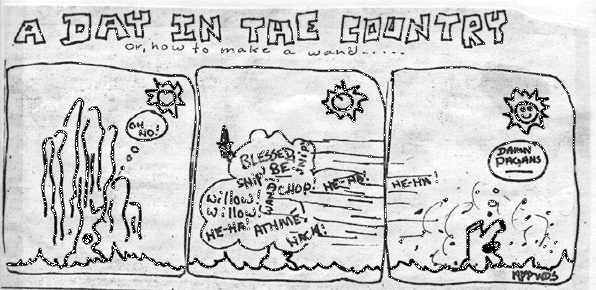 A DAY IN THE COUNTRY
or, how to make a wand.....
OH NO!
BLESSED BE
SNIP!
SNIP
CHOP!
HE-HA!
Willow!
Willow!
WAND
HE-HA
ATHAME
HACK!
HE-HA!
DAMN PAGANS